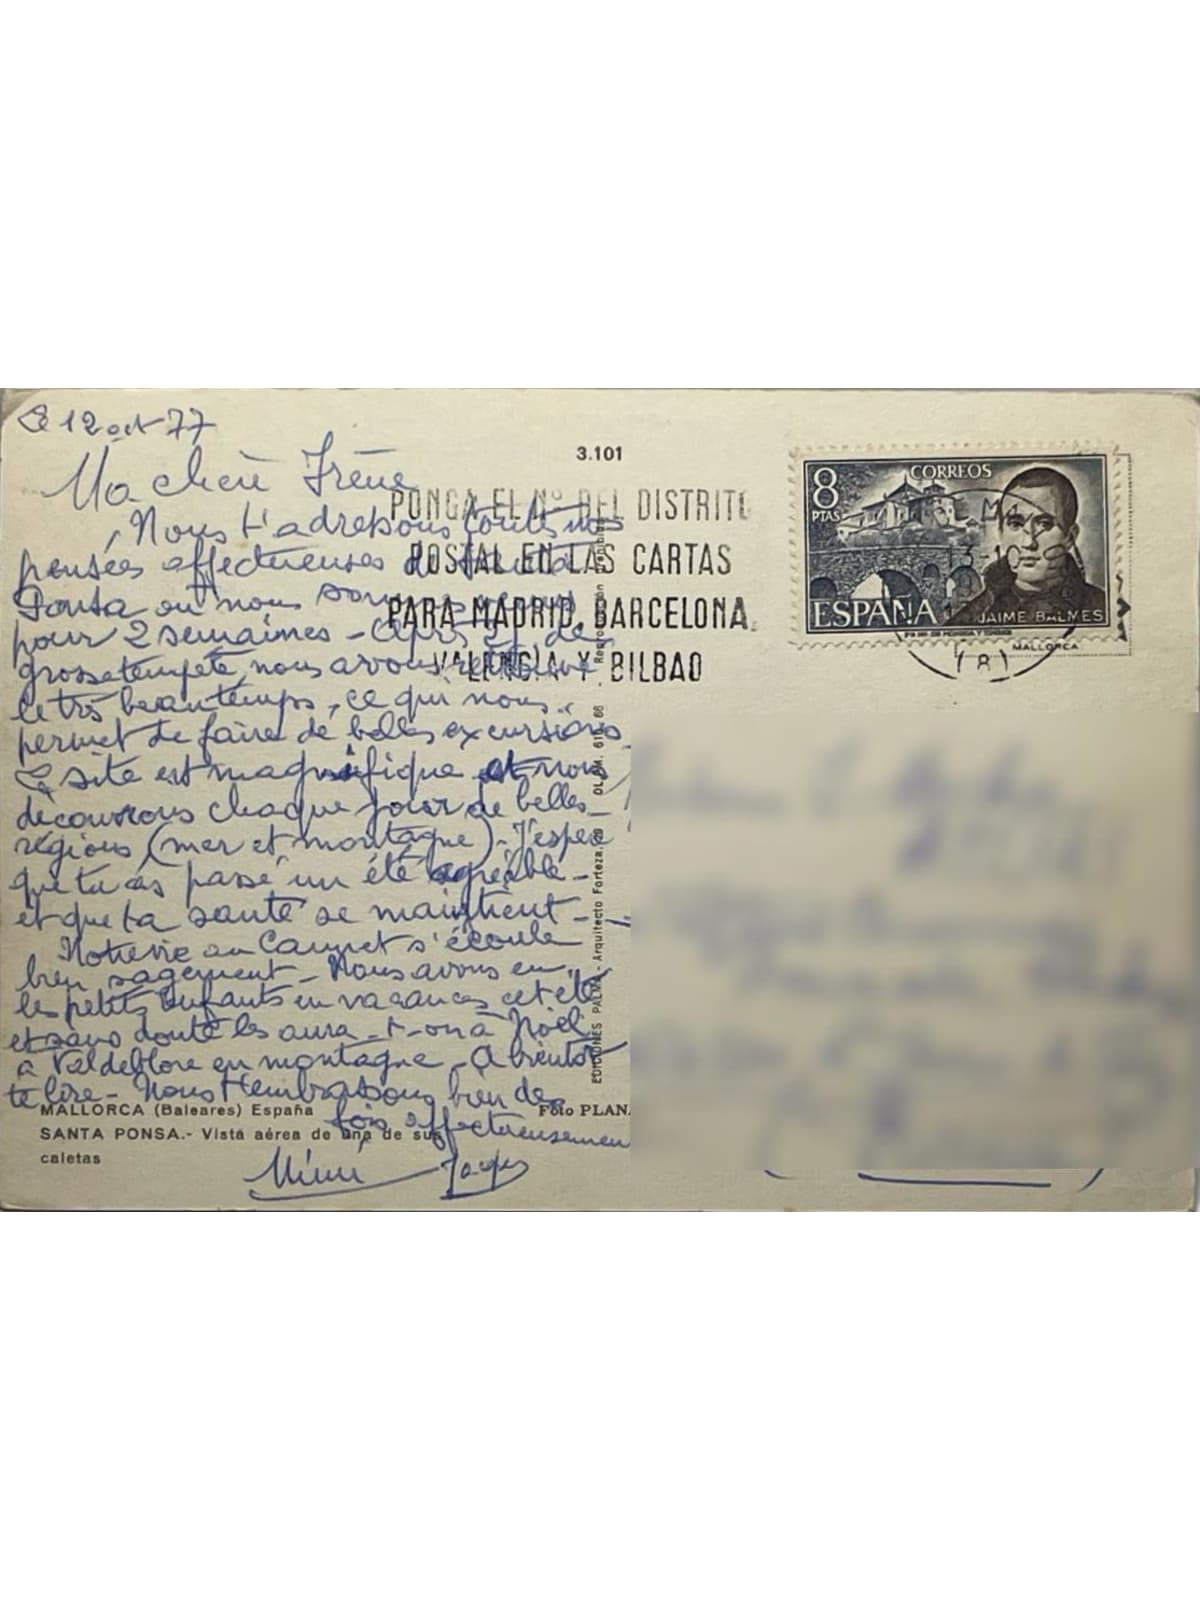 Le 12 oct 77
Ma chère Irène
Nous t'adressons toutes nos
pensées affectueuses de Santa
Ponsa où nous sommes
pour 2 semaines - Après 2 j de
grosse tempête nous avons retrouvé
le très beau temps, ce qui nous
permet de faire de belles excursions
Le site est magnifique et nous
découvrons chaque jour de belles
régions (mer et montagne) - J'espère
que tu as passé un été agréable -
et que ta santé se maintient -
Notre vie au Cannet s'écoule
bien sagement - Nous avons eu
les petits enfants en vacances cet été
et sans doute les aura-t-on à Noël
à Valdeblore en montagne - A bientôt
te lire - Nous t'embrassons bien des
fois affectueusement
Mimi Jacques
3.101
PONGA EL Nº DEL DISTRITO
POSTAL EN LAS CARTAS
PARA MADRID, BARCELONA,
VALENCIA Y BILBAO
8
PTAS
CORREOS
ESPAÑA
JAIME BALMES
MALLORCA
13-10
(8)
EDICIONES PALMA - Arquitecto Forteza,
MALLORCA (Baleares) España
SANTA PONSA.- Vista aérea de una de sus
caletas
Foto PLANA